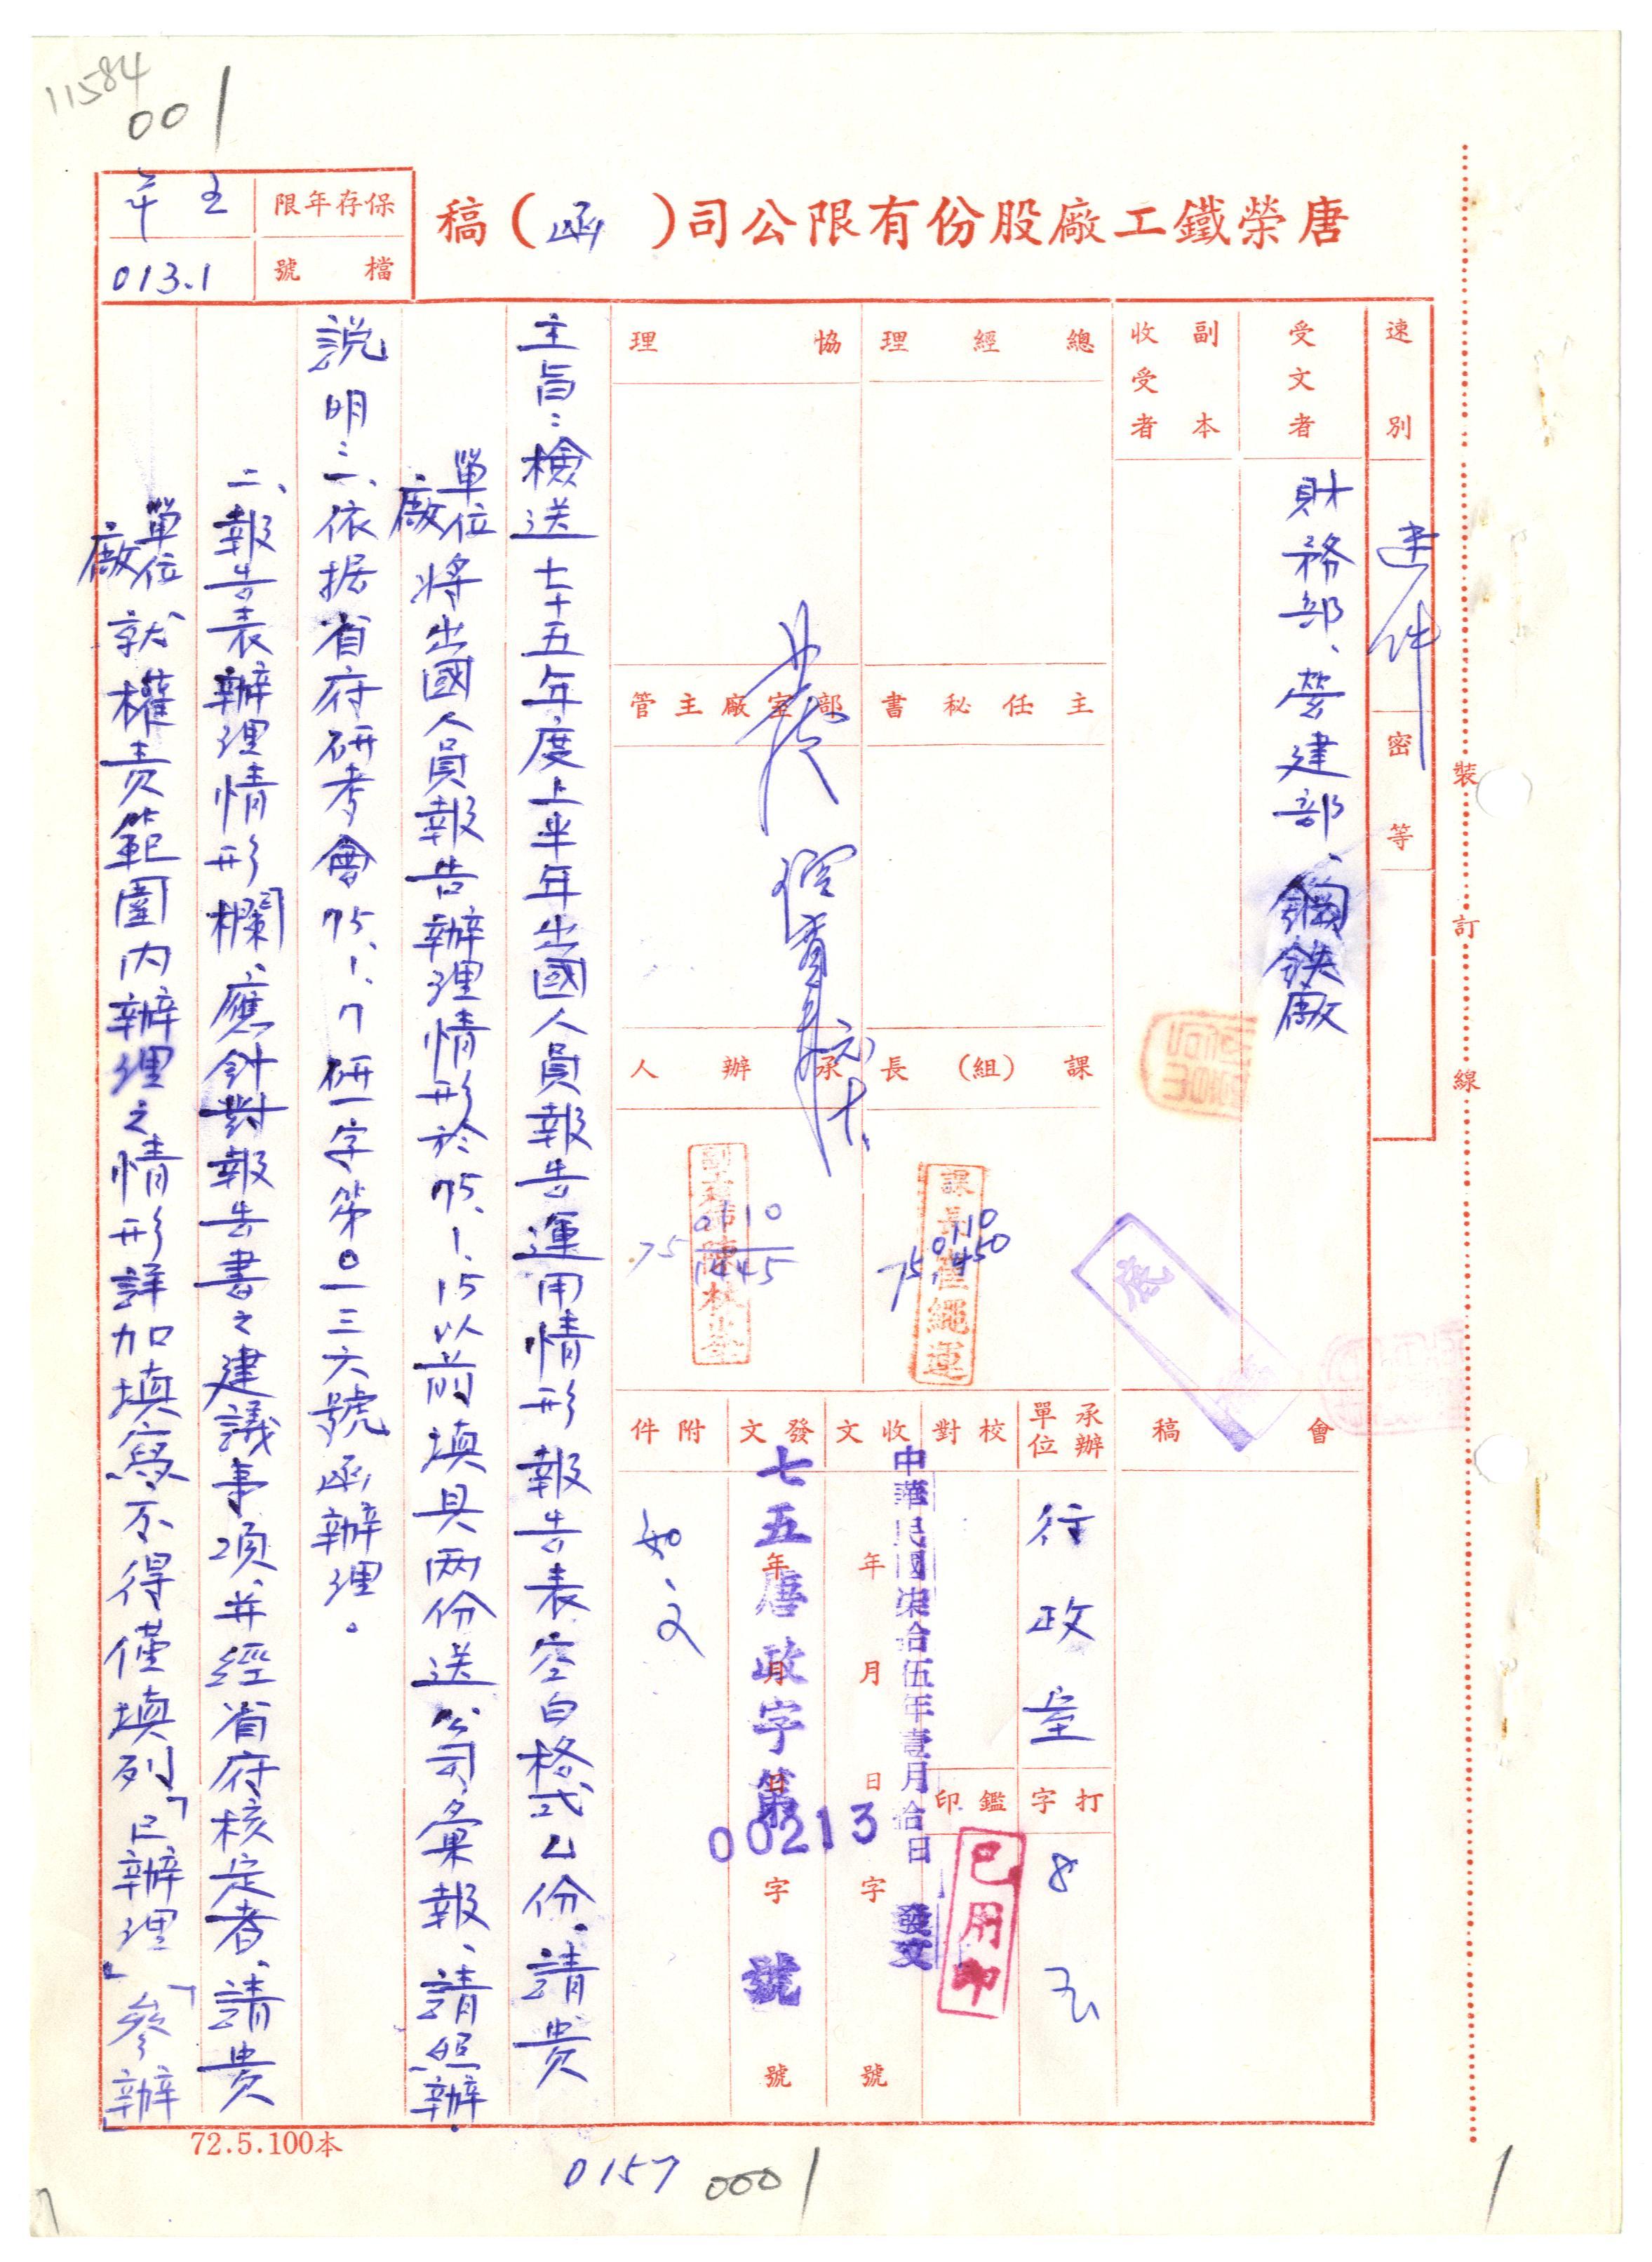 11584
001
唐榮鐵工廠股份有限公司(函)稿
保存年限
五年
檔號
013.1
速別
速件
密等
受文者
財務部、營建部、鋼鉄廠
副本收受者
總經理
協理
主任秘書
部室廠主管
課(組)長
承辦人
課長
繩運
75 0110 1450
75 0110 1445
會稿
底
承辦單位
行政室
校對
收文
年月日字號
發文
年月日字號
附件
如文
中華民國柒拾伍年壹月拾日
發文
七五唐政字第
00213
號
打字
鑑印
已用印
主旨：檢送七十五年度上半年出國人員報告運用情形報告表空白格式乙份，請貴
單位廠將出國人員報告辦理情形於75.1.15以前填具兩份送公司彙報、請照辦。
說明：一、依据省府研考會75.1.7研一字第0一三六號函辦理。
二、報告表辦理情形欄，應針對報告書之建議事項，並經省府核定者、請貴
單位廠就權責範圍內辦理之情形詳加填寫，不得僅填列「已辦理」「參辦」
裝訂線
72.5.100本
0157
0001
1